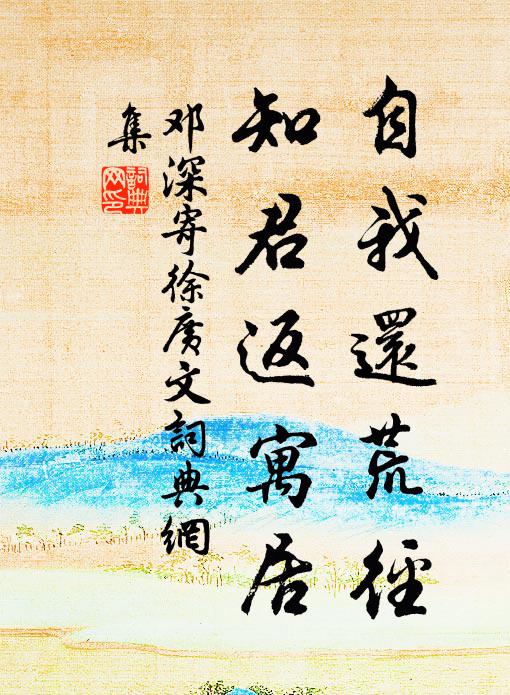 自我還荒徑
知君返寓居
邓深寄徐广文詞典網
集
詞典網印